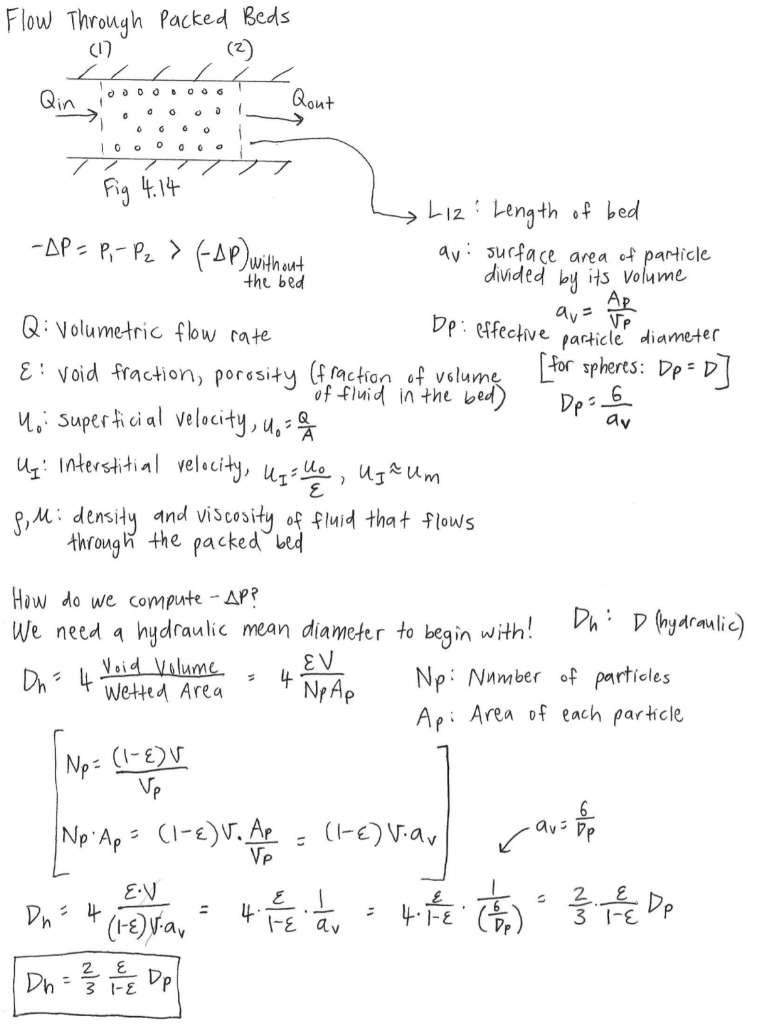 Flow Through Packed Beds
(1) (2)
Qin Qout
Fig 4.14
L12 : Length of bed
-ΔP = P₁ - P₂ > (-ΔP) without the bed
av : surface area of particle
divided by its volume
av = Ap/Vp
Q : Volumetric flow rate
Dp : effective particle diameter
[for spheres: Dp = D]
Dp = 6/av
ε : void fraction, porosity (fraction of volume
of fluid in the bed)
u₀ : superficial velocity, u₀ = Q/A
uI : Interstitial velocity, uI = u₀/ε , uI ≈ um
ρ, μ : density and viscosity of fluid that flows
through the packed bed
How do we compute -ΔP?
We need a hydraulic mean diameter to begin with! Dh : D (hydraulic)
Dh = 4 Void Volume/Wetted Area = 4 εV/NpAp
Np : Number of particles
Ap : Area of each particle
[Np = (1-ε)V/Vp
Np·Ap = (1-ε)V·Ap/Vp = (1-ε)V·av]
av = 6/Dp
Dh = 4 ε·V/(1-ε)V·av = 4·ε/1-ε·1/av = 4·ε/1-ε·1/(6/Dp) = 2/3·ε/1-ε Dp
Dh = 2/3 ε/1-ε Dp